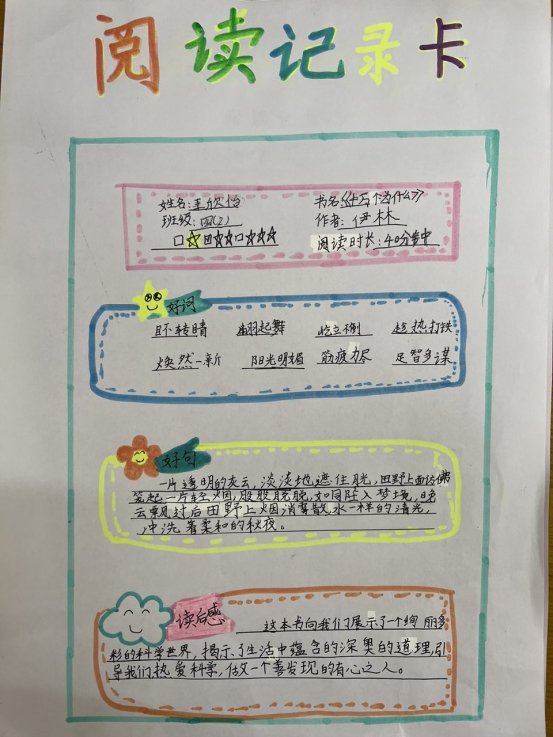 阅读记录卡
姓名:王欣怡
班级:四(2)
书名《十万个为什么》
作者:伊林
阅读时长:40分钟
好词
目不转睛 翩翩起舞 屹立不倒 趁热打铁
焕然一新 阳光明媚 筋疲力尽 足智多谋
好句
一片透明的灰云,淡淡地遮住月光,田野上面仿佛
笼起一片轻烟,股股脱脱,如同陷入梦境,晚
云飘过后田野上烟消雾散,水一样的清光,
冲洗着柔和的秋夜。
读后感
这本书向我们展示了一个绚丽多
彩的科学世界,揭示了生活中蕴含的深奥的道理,引
导我们热爱科学,做一个善发现的有心之人。